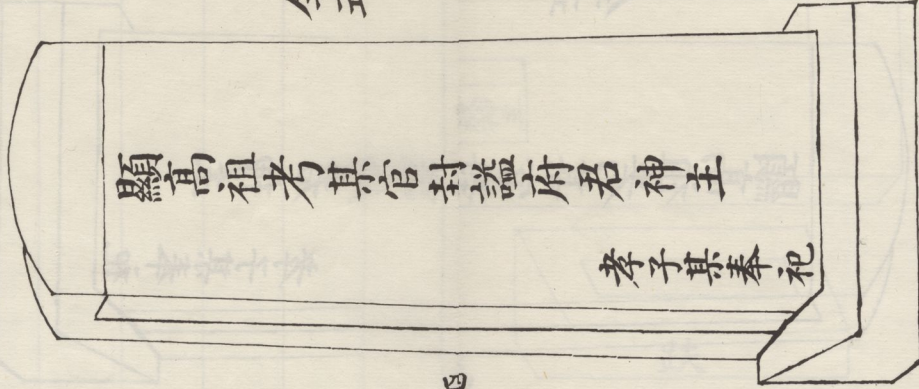 顯高祖考某官封謚府君神主
孝子某奉祀